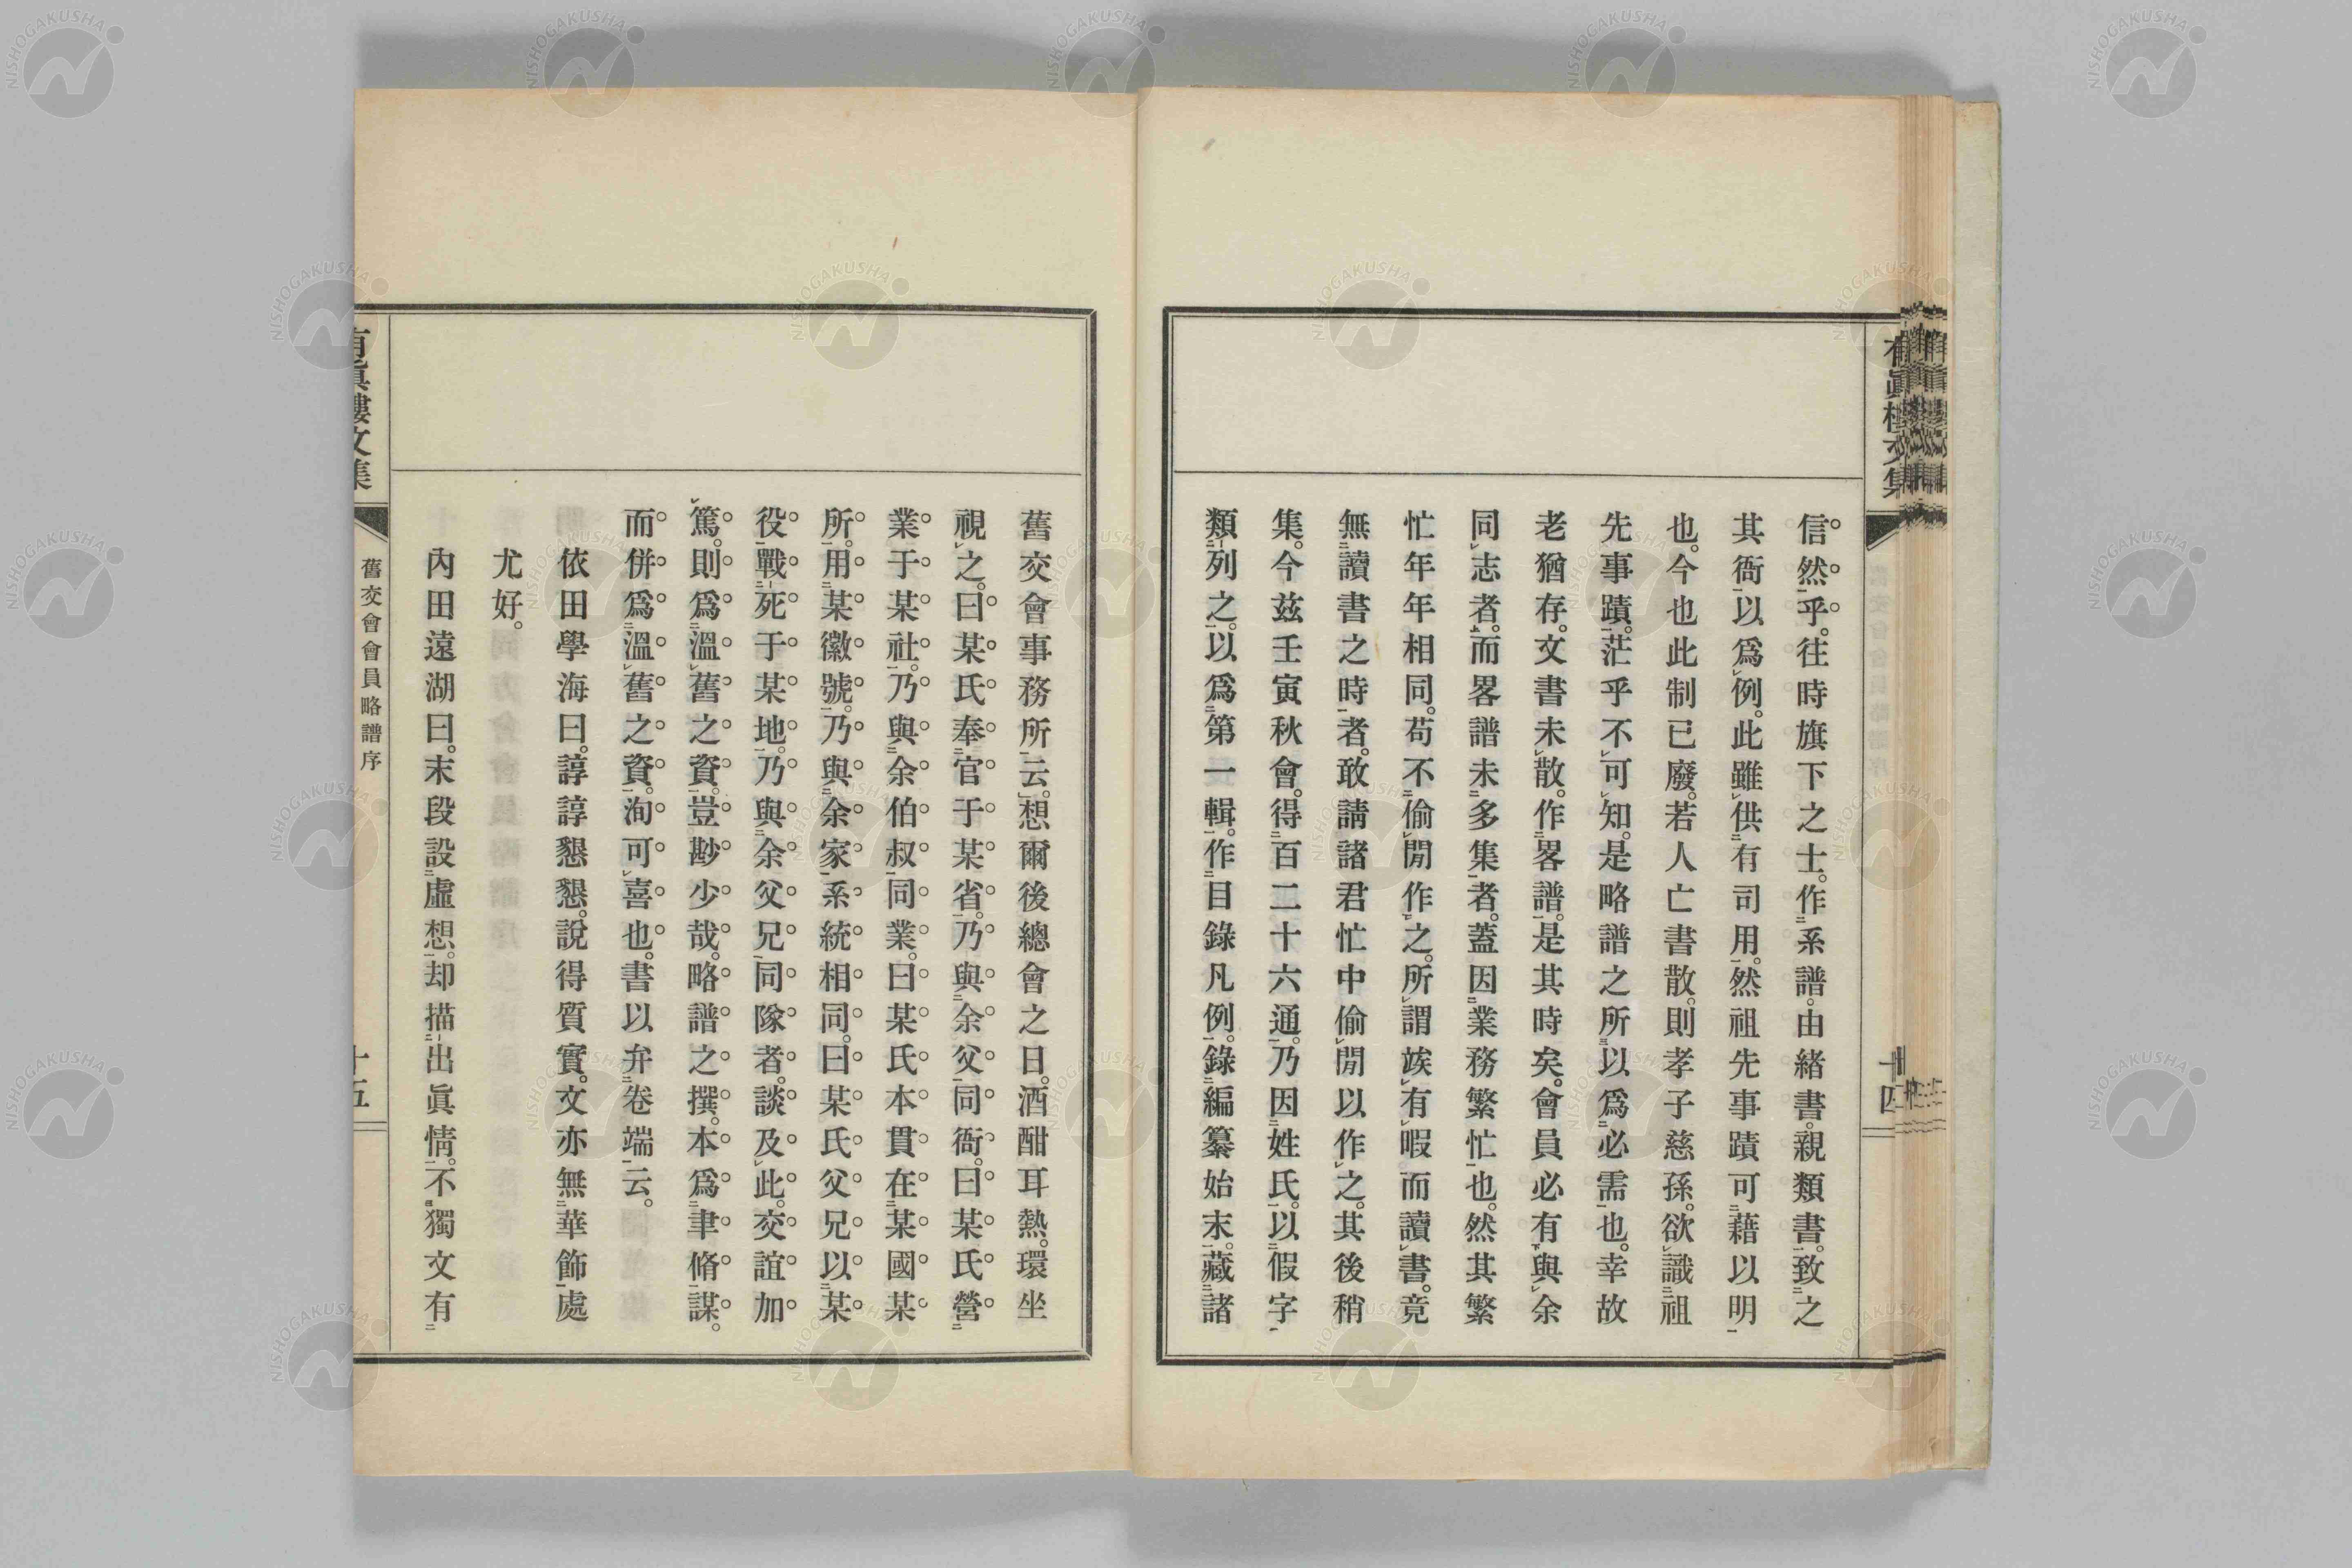 有眞樓文集
十四
信然乎。往時旗下之士。作系譜。由緒書。親類書。致之
其衙以爲例。此雖供有司用。然祖先事蹟可藉以明
也。今也此制已廢。若人亡書散。則孝子慈孫。欲識祖
先事蹟。茫乎不可知。是略譜之所以爲必需也。幸故
老猶存。文書未散。作畧譜。是其時矣。會員必有與余
同志者。而畧譜未多集者。蓋因業務繁忙也。然其繁
忙年年相同。苟不偷閒作之。所謂竢有暇而讀書。竟
無讀書之時者。敢請諸君忙中偷閒以作之。其後稍
集。今茲壬寅秋會。得百二十六通。乃因姓氏。以假字
類列之。以爲第一輯。作目錄凡例。錄編纂始末。藏諸
舊交會事務所云。想爾後總會之日。酒酣耳熱。環坐
視之。曰某氏奉官于某省。乃與余父同衙。曰某氏營
業于某社。乃與余伯叔同業。曰某氏本貫在某國某
所。用某徽號。乃與余家系統相同。曰某氏父兄以某
役戰死于某地。乃與余父兄同隊者。談及此。交誼加
篤。則爲溫舊之資。豈尠少哉。略譜之撰。本爲聿脩謀。
而併爲溫舊之資。洵可喜也。書以弁卷端云。
依田學海曰。諄諄懇懇。說得質實。文亦無華飾處
尤好。
內田遠湖曰。末段設虛想。却描出眞情。不獨文有
有眞樓文集
舊交會會員略譜序
十五
NISHOGAKUSHA